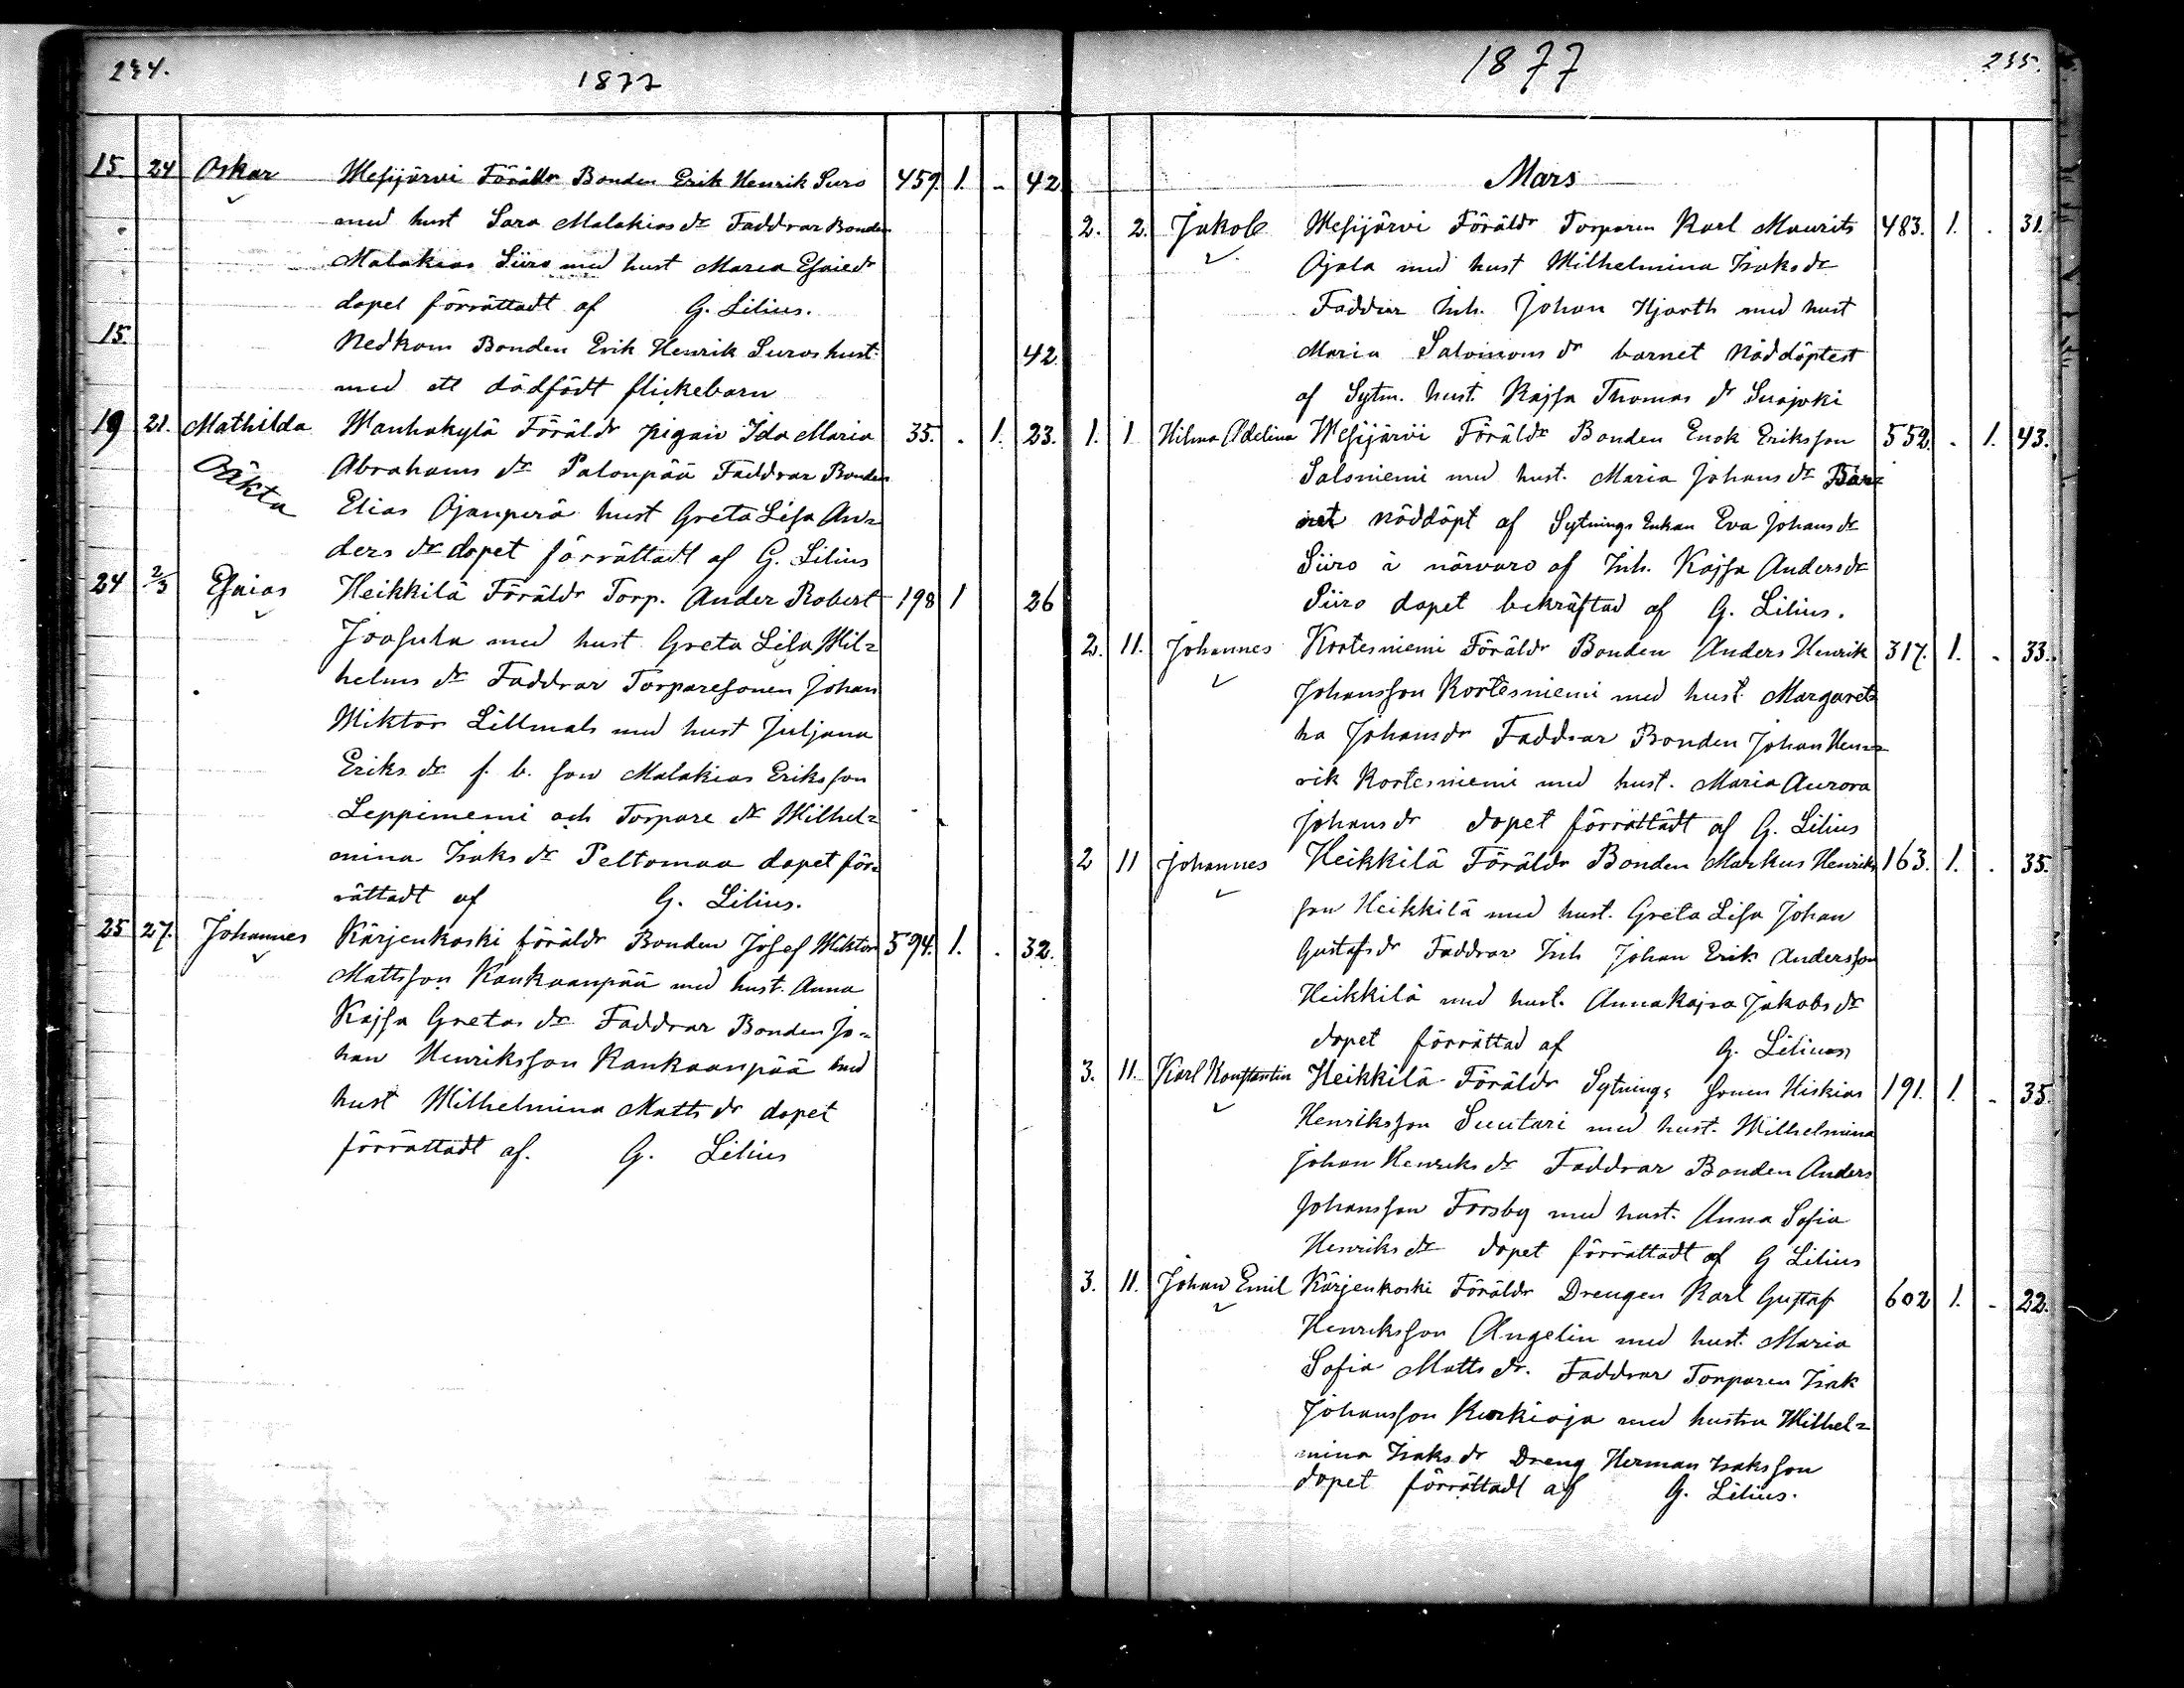 234.
1877
15 24 Oskar Wesijärvi Föräldr Bonden Erik Henrik Suro 459. 1. - 42
med hust Sara Malakias dr Faddrar Bonden
Malakias Siiro med hust Maria Esaiedr
dopet förrättadt af G. Lilius.
15. Nedkom Bonden Erik Henrik Suros hust. 42.
med ett dödfödt flickebarn
19 21. Mathilda Wanhakylä Föräldr pigan Ida Maria 35. . 1. 23.
Oäkta Abrahams dr Palonpää Faddrar Bonden
Elias Ojanperä hust Greta Lisa An=
ders dr dopet förrättadt af G. Lilius
24 2/3 Esaias Heikkilä Föräldr Torp. Ander Robert 198 1 26
Joosula med hust Greta Lisa Wil=
helms dr Faddrar Torparesonen Johan
Wiktor Lillmals med hust Juljana
Eriks dr f. b. son Malakias Eriksson
Leppiniemi och Torpare dr Wilhel=
mina Isaks dr Peltomaa dopet för=
rättadt af G. Lilius.
25 27. Johannes Kärjenkoski föräldr Bonden Josef Wiktor 594. 1. . 32.
Mattsson Kankaanpää med hust. Anna
Kajsa Gretas dr Faddrar Bonden Jo=
han Henriksson Kankaanpää med
hust Wilhelmina Matts dr dopet
förrättadt af. G. Lilius
1877
235.
Mars
2. 2. Jakob Wesijärvi Föräldr Torparen Karl Maurits 483. 1. . 31.
Ojala med hust Wilhelmina Isaks dr
Faddrar Inh. Johan Hjorth med hust
Maria Salomons dr barnet Nöddöptest
af Sytn. hust. Kajsa Thomas dr Suojoki
1. 1 Hilma Adelina Wesijärvi Föräldr Bonden Enok Eriksson 552. - 1. 43.
Saloniemi med hust. Maria Johans dr Bar=
net nöddöpt af Sytnings Enkan Eva Johans dr
Siiro i närvaro af Inh. Kajsa Anders dr
Siiro dopet bekräftad af G. Lilius.
2. 11. Johannes Kortesniemi Föräldr Bonden Anders Henrik 317. 1. - 33.
Johansson Kortesniemi med hust. Margaret=
ha Johansdr Faddrar Bonden Johan Hen=
rik Kortesniemi med hust. Maria Aurora
Johans dr dopet förrättadt af G. Lilius
2 11 Johannes Heikkilä Föräldr Bonden Markus Henriks 163. 1. . 35.
son Heikkilä med hust. Greta Lisa Johan
Gustafs dr Faddrar Inh Johan Erik Andersson
Heikkilä med hust. Anna Kajsa Jakobs dr
dopet förrättad af G. Lilius
3. 11. Karl Konstantin Heikkilä Föräldr Sytnings sonen Hiskias 191. 1. - 35.
Henriksson Suutari med hust. Wilhelmina
Johan Henriks dr Faddrar Bonden Anders
Johansson Forsby med hust. Anna Sofia
Henriks dr dopet förrättadt af G Lilius
3. 11. Johan Emil Kärjenkoski Föräldr Drengen Karl Gustaf 602 1. - 22.
Henriksson Angelin med hust. Maria
Sofia Matts dr. Faddrar Torparen Isak
Johansson Kurkioja med hustru Wilhel=
mina Isaks dr Dreng Herman Isaksson
dopet förrättadt af G. Lilius.